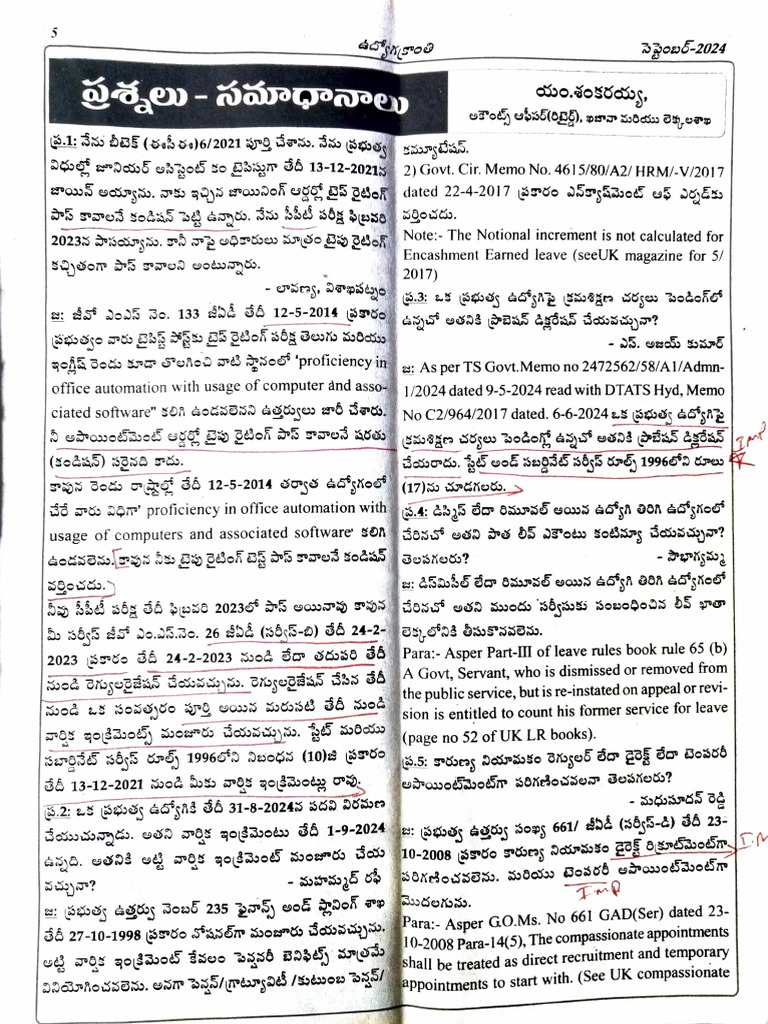 5
ఉద్యోగక్రాంతి
సెప్టెంబర్-2024
ప్రశ్నలు - సమాధానాలు
యం.శంకరయ్య,
అకౌంట్స్ ఆఫీసర్(రిటైర్డ్), ఖజానా మరియు లెక్కలశాఖ
ప్ర.1: నేను బీటెక్ (ఈసీఈ)6/2021 పూర్తి చేశాను. నేను ప్రభుత్వ
విధుల్లో జూనియర్ అసిస్టెంట్ కం టైపిస్టుగా తేదీ 13-12-2021న
జాయిన్ అయ్యాను. నాకు ఇచ్చిన జాయినింగ్ ఆర్డర్లో టైప్ రైటింగ్
పాస్ కావాలనే కండిషన్ పెట్టి ఉన్నారు. నేను సీపీటీ పరీక్ష ఫిబ్రవరి
2023న పాసయ్యాను. కానీ నాపై అధికారులు మాత్రం టైపు రైటింగ్
కచ్చితంగా పాస్ కావాలని అంటున్నారు.
- లావణ్య, విశాఖపట్నం
జ: జీవో ఎంఎస్ నెం. 133 జీఏడీ తేదీ 12-5-2014 ప్రకారం
ప్రభుత్వం వారు టైపిస్ట్ పోస్ట్‌కు టైప్ రైటింగ్ పరీక్ష తెలుగు మరియు
ఇంగ్లీష్ రెండు కూడా తొలగించి వాటి స్థానంలో 'proficiency in
office automation with usage of computer and asso-
ciated software" కలిగి ఉండవలెనని ఉత్తర్వులు జారీ చేశారు.
నీ అపాయింట్‌మెంట్ ఆర్డర్లో టైపు రైటింగ్ పాస్ కావాలనే షరతు
(కండిషన్) సరైనది కాదు.
కావున రెండు రాష్ట్రాల్లో తేదీ 12-5-2014 తర్వాత ఉద్యోగంలో
చేరే వారు విధిగా' proficiency in office automation with
usage of computers and associated software' కలిగి
ఉండవలెను. కావున నీకు టైపు రైటింగ్ టెస్ట్ పాస్ కావాలనే కండిషన్
వర్తించదు.
నీవు సీపీటీ పరీక్ష తేదీ ఫిబ్రవరి 2023లో పాస్ అయినావు కావున
మీ సర్వీస్ జీవో ఎం.ఎస్.నెం. 26 జీఏడీ (సర్వీస్-బి) తేదీ 24-2-
2023 ప్రకారం తేదీ 24-2-2023 నుండి లేదా తదుపరి తేదీ
నుండి రెగ్యులరైజేషన్ చేయవచ్చును. రెగ్యులరైజేషన్ చేసిన తేదీ
నుండి ఒక సంవత్సరం పూర్తి అయిన మరుసటి తేదీ నుండి
వార్షిక ఇంక్రిమెంట్స్ మంజూరు చేయవచ్చును. స్టేట్ మరియు
సబార్డినేట్ సర్వీస్ రూల్స్ 1996లోని నిబంధన (10)జి ప్రకారం
తేదీ 13-12-2021 నుండి మీకు వార్షిక ఇంక్రిమెంట్లు రావు.
ప్ర.2: ఒక ప్రభుత్వ ఉద్యోగికి తేదీ 31-8-2024న పదవి విరమణ
చేయుచున్నాడు. అతని వార్షిక ఇంక్రిమెంటు తేదీ 1-9-2024
ఉన్నది. అతనికి అట్టి వార్షిక ఇంక్రిమెంట్ మంజూరు చేయ
వచ్చునా? - మహమ్మద్ రఫీ
జ: ప్రభుత్వ ఉత్తర్వు నెంబర్ 235 ఫైనాన్స్ అండ్ ప్లానింగ్ శాఖ
తేదీ 27-10-1998 ప్రకారం నోషనల్‌గా మంజూరు చేయవచ్చును.
అట్టి వార్షిక ఇంక్రిమెంట్ కేవలం పెన్షనరీ బెనిఫిట్స్ మాత్రమే
వినియోగించవలెను. అనగా పెన్షన్/గ్రాట్యూవిటీ /కుటుంబ పెన్షన్/
కమ్యూటేషన్.
2) Govt. Cir. Memo No. 4615/80/A2/ HRM/-V/2017
dated 22-4-2017 ప్రకారం ఎన్‌క్యాష్‌మెంట్ ఆఫ్ ఎర్నడ్‌కు
వర్తించదు.
Note:- The Notional increment is not calculated for
Encashment Earned leave (seeUK magazine for 5/
2017)
ప్ర.3: ఒక ప్రభుత్వ ఉద్యోగిపై క్రమశిక్షణ చర్యలు పెండింగ్‌లో
ఉన్నచో అతనికి ప్రొబెషన్ డిక్లరేషన్ చేయవచ్చునా?
- ఎస్. అజయ్ కుమార్
జ: As per TS Govt.Memo no 2472562/58/A1/Admn-
1/2024 dated 9-5-2024 read with DTATS Hyd, Memo
No C2/964/2017 dated. 6-6-2024 ఒక ప్రభుత్వ ఉద్యోగిపై
క్రమశిక్షణ చర్యలు పెండింగ్లో ఉన్నచో అతనికి ప్రొబేషన్ డిక్లరేషన్
IMP
చేయరాదు. స్టేట్ అండ్ సబర్డినేట్ సర్వీస్ రూల్స్ 1996లోని రూలు
(17)ను చూడగలరు.
ప్ర.4: డిస్మిస్ లేదా రిమూవల్ అయిన ఉద్యోగి తిరిగి ఉద్యోగంలో
చేరినచో అతని పాత లీవ్ ఎకౌంటు కంటిమ్యూ చేయవచ్చునా?
తెలపగలరు? - సౌభాగ్యమ్మ
జ: డిస్‌మిసీల్ లేదా రిమూవల్ అయిన ఉద్యోగి తిరిగి ఉద్యోగంలో
చేరినచో అతని ముందు సర్వీసుకు సంబంధించిన లీవ్ ఖాతా
లెక్కలోనికి తీసుకొనవలెను.
Para:- Asper Part-III of leave rules book rule 65 (b)
A Govt, Servant, who is dismissed or removed from
the public service, but is re-instated on appeal or revi-
sion is entitled to count his former service for leave
(page no 52 of UK LR books).
ప్ర.5: కారుణ్య నియామకం రెగ్యులర్ లేదా డైరెక్ట్ లేదా టెంపరరీ
అపాయింట్‌మెంట్‌గా పరిగణించవలనా తెలపగలరు?
- మధుసూదన్ రెడ్డి
జ: ప్రభుత్వ ఉత్తర్వు సంఖ్య 661/ జీఏడీ (సర్వీస్-డి) తేదీ 23-
10-2008 ప్రకారం కారుణ్య నియామకం డైరెక్ట్ రిక్రూట్‌మెంట్‌గా
పరిగణించవలెను. మరియు టెంపరరీ అపాయింట్‌మెంట్‌గా
IMP
మొదలగును.
Para:- Asper G.O.Ms. No 661 GAD(Ser) dated 23-
10-2008 Para-14(5), The compassionate appointments
shall be treated as direct recruitment and temporary
appointments to start with. (See UK compassionate